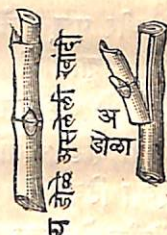 य डोळे असलेली खांदी
अ
डोळा